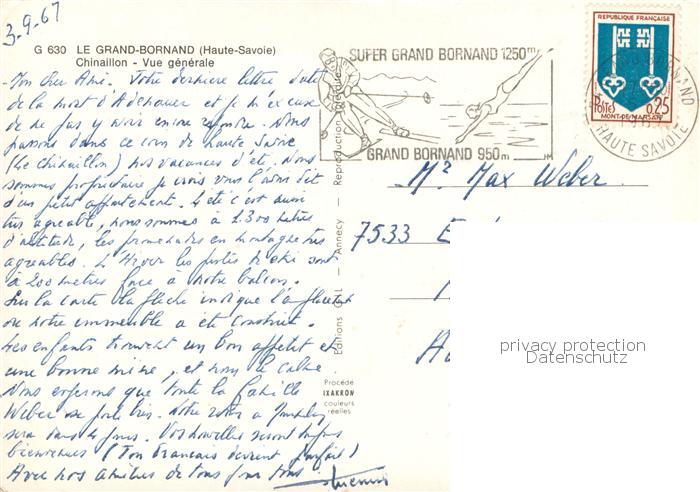 3.9.67
G 630 LE GRAND-BORNAND (Haute-Savoie)
Chinaillon - Vue générale
Mon cher Ami. Votre dernière lettre date
de la mort d'Adenauer et je m'excuse
de ne pas y avoir encore répondre. Nous
passons dans ce coin de haute Savoie
(Le Chinaillon) nos vacances d'été. Nous
sommes propriétaire je crois vous l'avoir dit
d'un petit appartement. L'été c'est aussi
très agréable, nous sommes à 1.300 mètres
d'altitude, les promenades en montagne très
agréables. L'Hiver les pistes de ski sont
à 200 mètres face à notre balcon.
Sur la carte la flèche indique l'
ou notre immeuble a été construit.
Les enfants trouvent un bon appétit et
une bonne mine, et nous le calme.
Nous espérons que toute la famille
Weber se porte bien. Notre retour à
sera dans 4 jours. Vos nouvelles seront
bienvenues (Ton Français devient parfait)
Avec nos amitiés de tous pour tous
Editions GAL - Annecy - Reproduction
Procédé
IXAKRON
couleurs
réelles
SUPER GRAND BORNAND 1250m
GRAND BORNAND 950m
REPUBLIQUE FRANÇAISE
POSTES 0,25
MONT-DE-MARSAN
HAUTE SAVOIE
Mr Max Weber
7533
privacy protection
Datenschutz